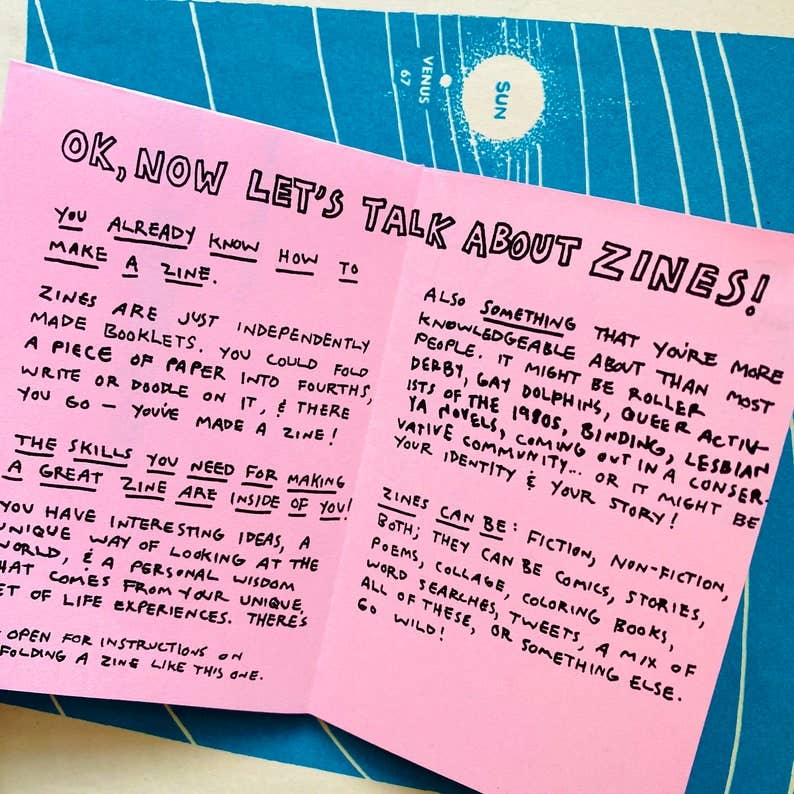 VENUS
67
SUN
OK, NOW LET'S TALK ABOUT ZINES!
YOU ALREADY KNOW HOW TO
MAKE A ZINE.
ZINES ARE JUST INDEPENDENTLY
MADE BOOKLETS. YOU COULD FOLD
A PIECE OF PAPER INTO FOURTHS,
WRITE OR DOODLE ON IT, & THERE
YOU GO — YOU'VE MADE A ZINE!
THE SKILLS YOU NEED FOR MAKING
A GREAT ZINE ARE INSIDE OF YOU!
YOU HAVE INTERESTING IDEAS, A
UNIQUE WAY OF LOOKING AT THE
WORLD, & A PERSONAL WISDOM
HAT COMES FROM YOUR UNIQUE
ET OF LIFE EXPERIENCES. THERE'S
OPEN FOR INSTRUCTIONS ON
FOLDING A ZINE LIKE THIS ONE.
ALSO SOMETHING THAT YOU'RE MORE
KNOWLEDGEABLE ABOUT THAN MOST
PEOPLE. IT MIGHT BE ROLLER
DERBY, GAY DOLPHINS, QUEER ACTIV-
ISTS OF THE 1980s, BINDING, LESBIAN
YA NOVELS, COMING OUT IN A CONSER-
VATIVE COMMUNITY... OR IT MIGHT BE
YOUR IDENTITY & YOUR STORY!
ZINES CAN BE: FICTION, NON-FICTION,
BOTH; THEY CAN BE COMICS, STORIES,
POEMS, COLLAGE, COLORING BOOKS,
WORD SEARCHES, TWEETS, A MIX OF
ALL OF THESE, OR SOMETHING ELSE.
GO WILD!